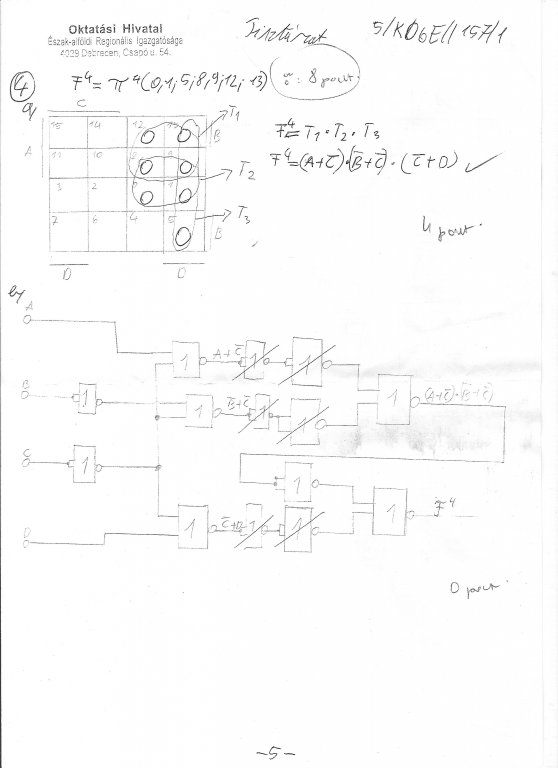 Oktatási Hivatal
Észak-alföldi Regionális Igazgatósága
4029 Debrecen, Csapó u. 54.
Tisztázat
5/KD6E//157/1
4
F⁴ = π⁴(0,1,5,8,9,12,13)
8 pont.
a,
C
15 14 12 13
A
11 10 8 9
3 2 0 1
7 6 4 5
B
B
D D
T₁
T₂
T₃
F⁴ = T₁ · T₂ · T₃
F⁴ = (A+C̅)·(B̅+C̅)·(C̅+D)
4 pont.
b,
A
B
C
D
1 A+C̅ 1 1
1 1 B̅+C̅ 1 1
1 (A+C̅)·(B̅+C̅)
1
1
1 C̅+D 1 1
1 F⁴
0 pont.
-5-